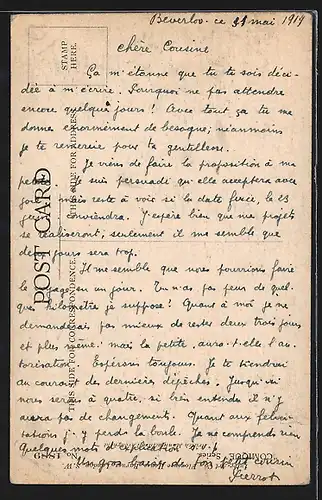 Beverloo. ce 31 mai 1919
STAMP
HERE.
chère Cousine
Ça m'étonne que tu te sois déci-
dée à m'écrire. Pourquoi ne pas attendre
encore quelques jours! Avec tout ça tu me
donnes énormément de besogne; néanmoins
je te remercie pour ta gentillesse.
Je viens de faire la proposition à ma
suis persuadé qu'elle acceptera avec
mais reste à voir si la date fixée, le 23
juin conviendra. J'espère bien que nos projets
se réaliseront, seulement il me semble que
deux jours sera trop.
Il me semble que nous pourrions faire
le voyage en un jour. Tu n'as pas peur de quel-
ques kilomètres je suppose! Quant à moi je ne
demanderais pas mieux de rester deux trois jours
et plus même. mais la petite, aura-t-elle l'au-
torisation. Espérons toujours. Je te tiendrai
au courant des dernières dépêches. Jusqu'ici
nous serons à quatre, si bien entendu il n'y
aura pas de changements. Quant aux félici-
tations j'y perds la boule. Je ne comprends rien
Quelques mots d'explication s.v.p.
Un gros baiser de ton petit cousin
Pierrot
POST CARD
THIS SIDE FOR CORRESPONDENCE.
THIS SIDE FOR ADDRESS.
COMIQUE
Series
No. 1889